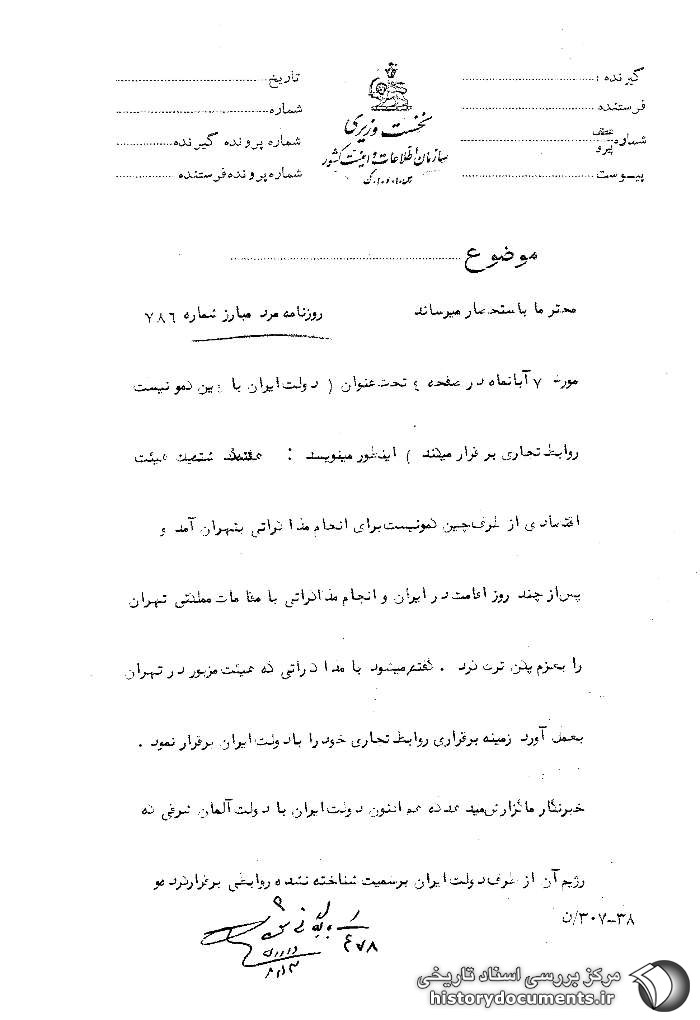 گیرنده :
فرستنده
شماره عطف پیرو
پیوست
نخست وزیری
سازمان اطلاعات و امنیت کشور
س.ا.و.ا.ک
تاریخ
شماره
شماره پرونده گیرنده
شماره پرونده فرستنده
موضوع
محترما باستحضار میرساند روزنامه مرد مبارز شماره ۷۸۶
مورخه ۷ آبانماه در صفحه ۴ تحت عنوان ( دولت ایران با چین کمونیست
روابط تجاری برقرار میکند ) اینطور مینویسد : هفته گذشته هیئت
اقتصادی از طرف چین کمونیست برای انجام مذاکراتی بتهران آمد و
پس از چند روز اقامت در ایران و انجام مذاکراتی با مقامات مملکتی تهران
را بعزم پکن ترک کرد . گفته میشود با مذاکراتی که هیئت مزبور در تهران
بعمل آورد زمینه برقراری روابط تجاری خود را با دولت ایران برقرار نمود .
خبرنگار ما گزارش میدهد که هم اکنون دولت ایران با دولت آلمان شرقی که
رژیم آن از طرف دولت ایران برسمیت شناخته نشده روابطی برقرار کرده و
۳۰۷-۳۸/ن
۴۷۸
مرکز بررسی اسناد تاریخی
historydocuments.ir